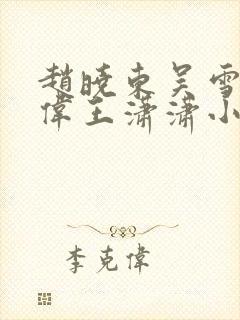 趙曉東吳雪
偉王瀟瀟小
李克偉